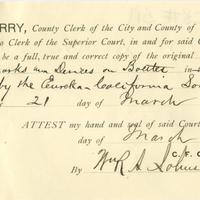 RRY, County Clerk of the City and County of
o Clerk of the Superior Court, in and for said C
be a full, true and correct copy of the original
arks and Devices on Bottles in
by the Eureka-California So
21 day of March
ATTEST my hand and seal of said Court
day of March
C. F. C
By Wm R. A.